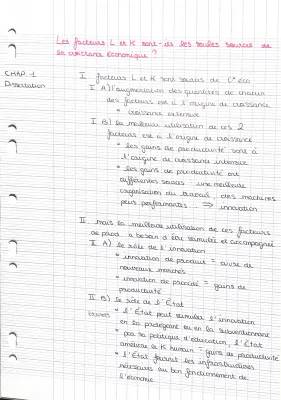 Les facteurs L et K sont-ils les seules sources de
la croissance économique ?
CHAP. 1
Dissertation
I facteurs L et K sont sources de C° éco
I A) l'augmentation des quantités de chacun
des facteurs est à l'origine de croissance
croissance extensive
I B) la meilleure utilisation de ces 2
facteurs est à l'origine de croissance
• les gains de productivité sont à
l'origine de croissance intensive
• les gains de productivité ont
différentes sources une meilleure
organisation du travail, des machines
plus performantes ⇒ innovation
II mais la meilleure utilisation de ces facteurs
de prod. a besoin d'être stimulée et accompagnée
II A) le rôle de l'innovation
• innovation de produit = cause de
nouveaux marchés
• innovation de procédé = gains de
productivité
II B) le rôle de l'État
• l'État peut stimuler l'innovation
brevets
en la protégeant ou en la subventionnant
• par sa politique d'éducation, l'État
améliore le K humain = gains de productivité
• l'État fournit les infrastructures
nécessaires au bon fonctionnement de
l'économie.